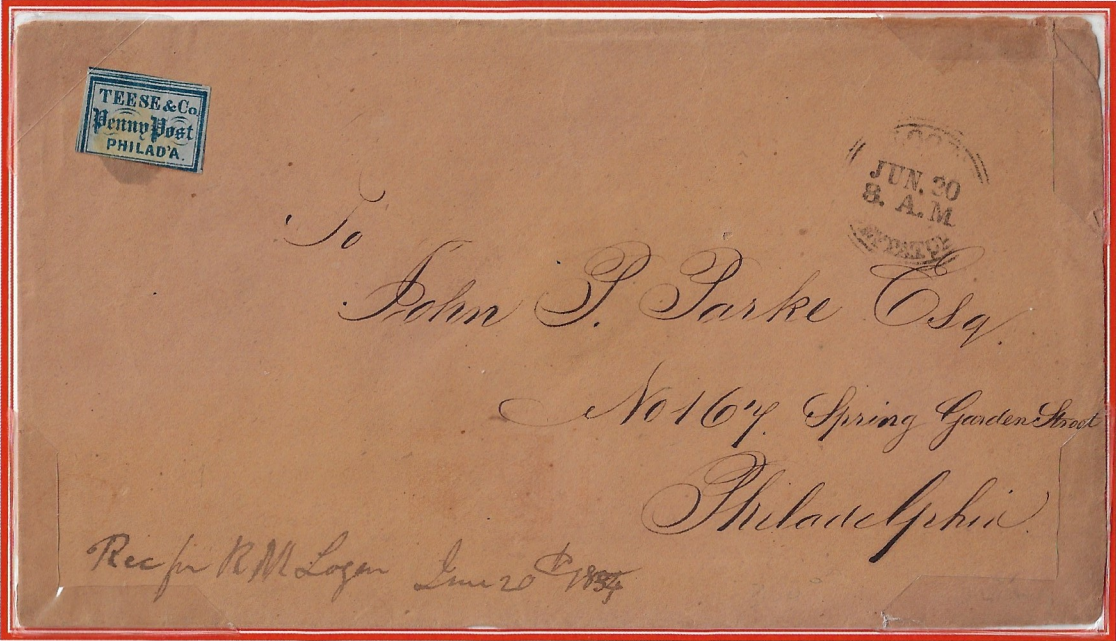 TEESE & Co.
Penny Post
PHILAD'A.
JUN. 20
8. A.M.
To
John P. Parke Esq.
No 167. Spring Garden Street
Philadelphia
Rec fm R M Logan June 20th